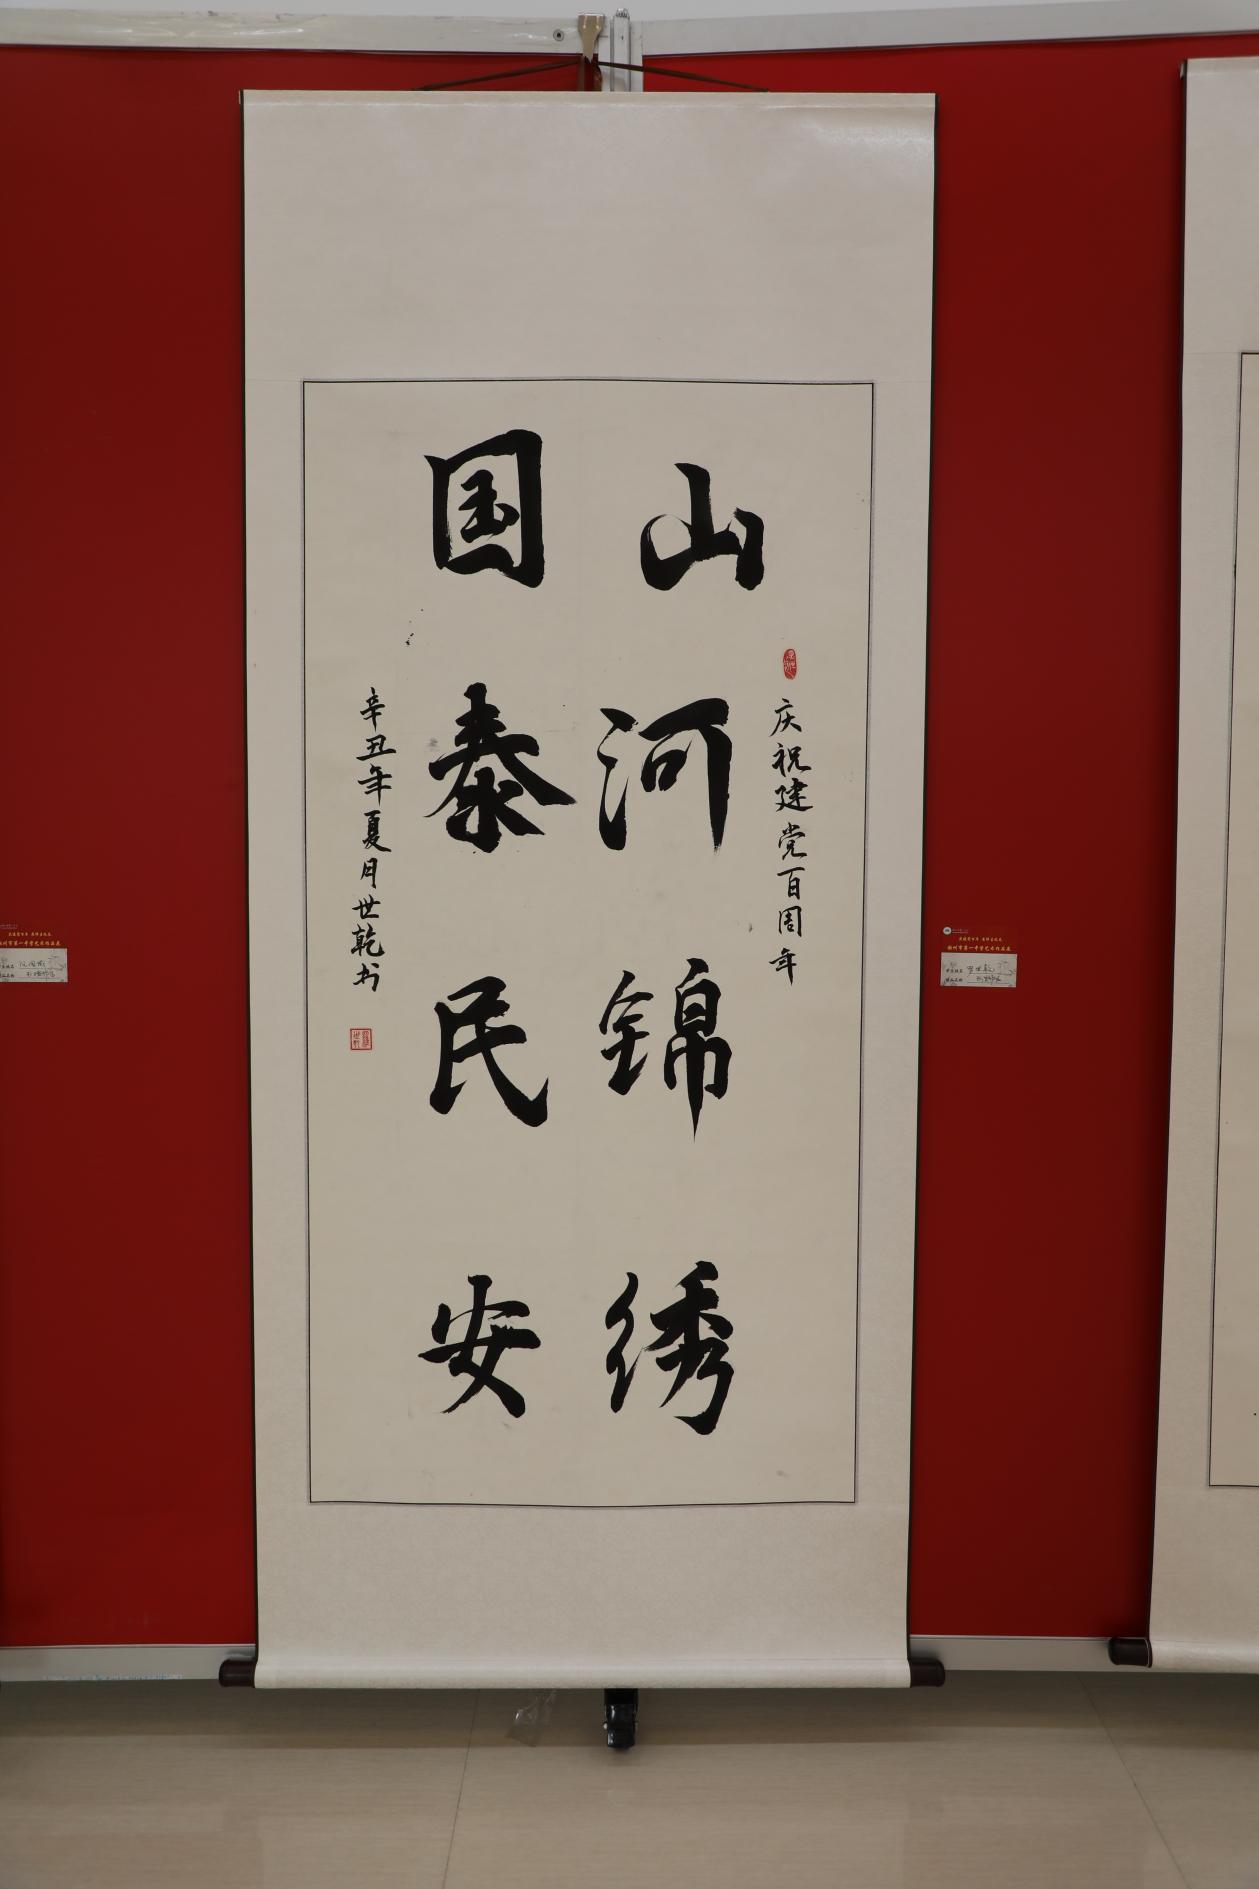 庆祝建党百周年
山河锦绣
国泰民安
辛丑年夏月世乾书